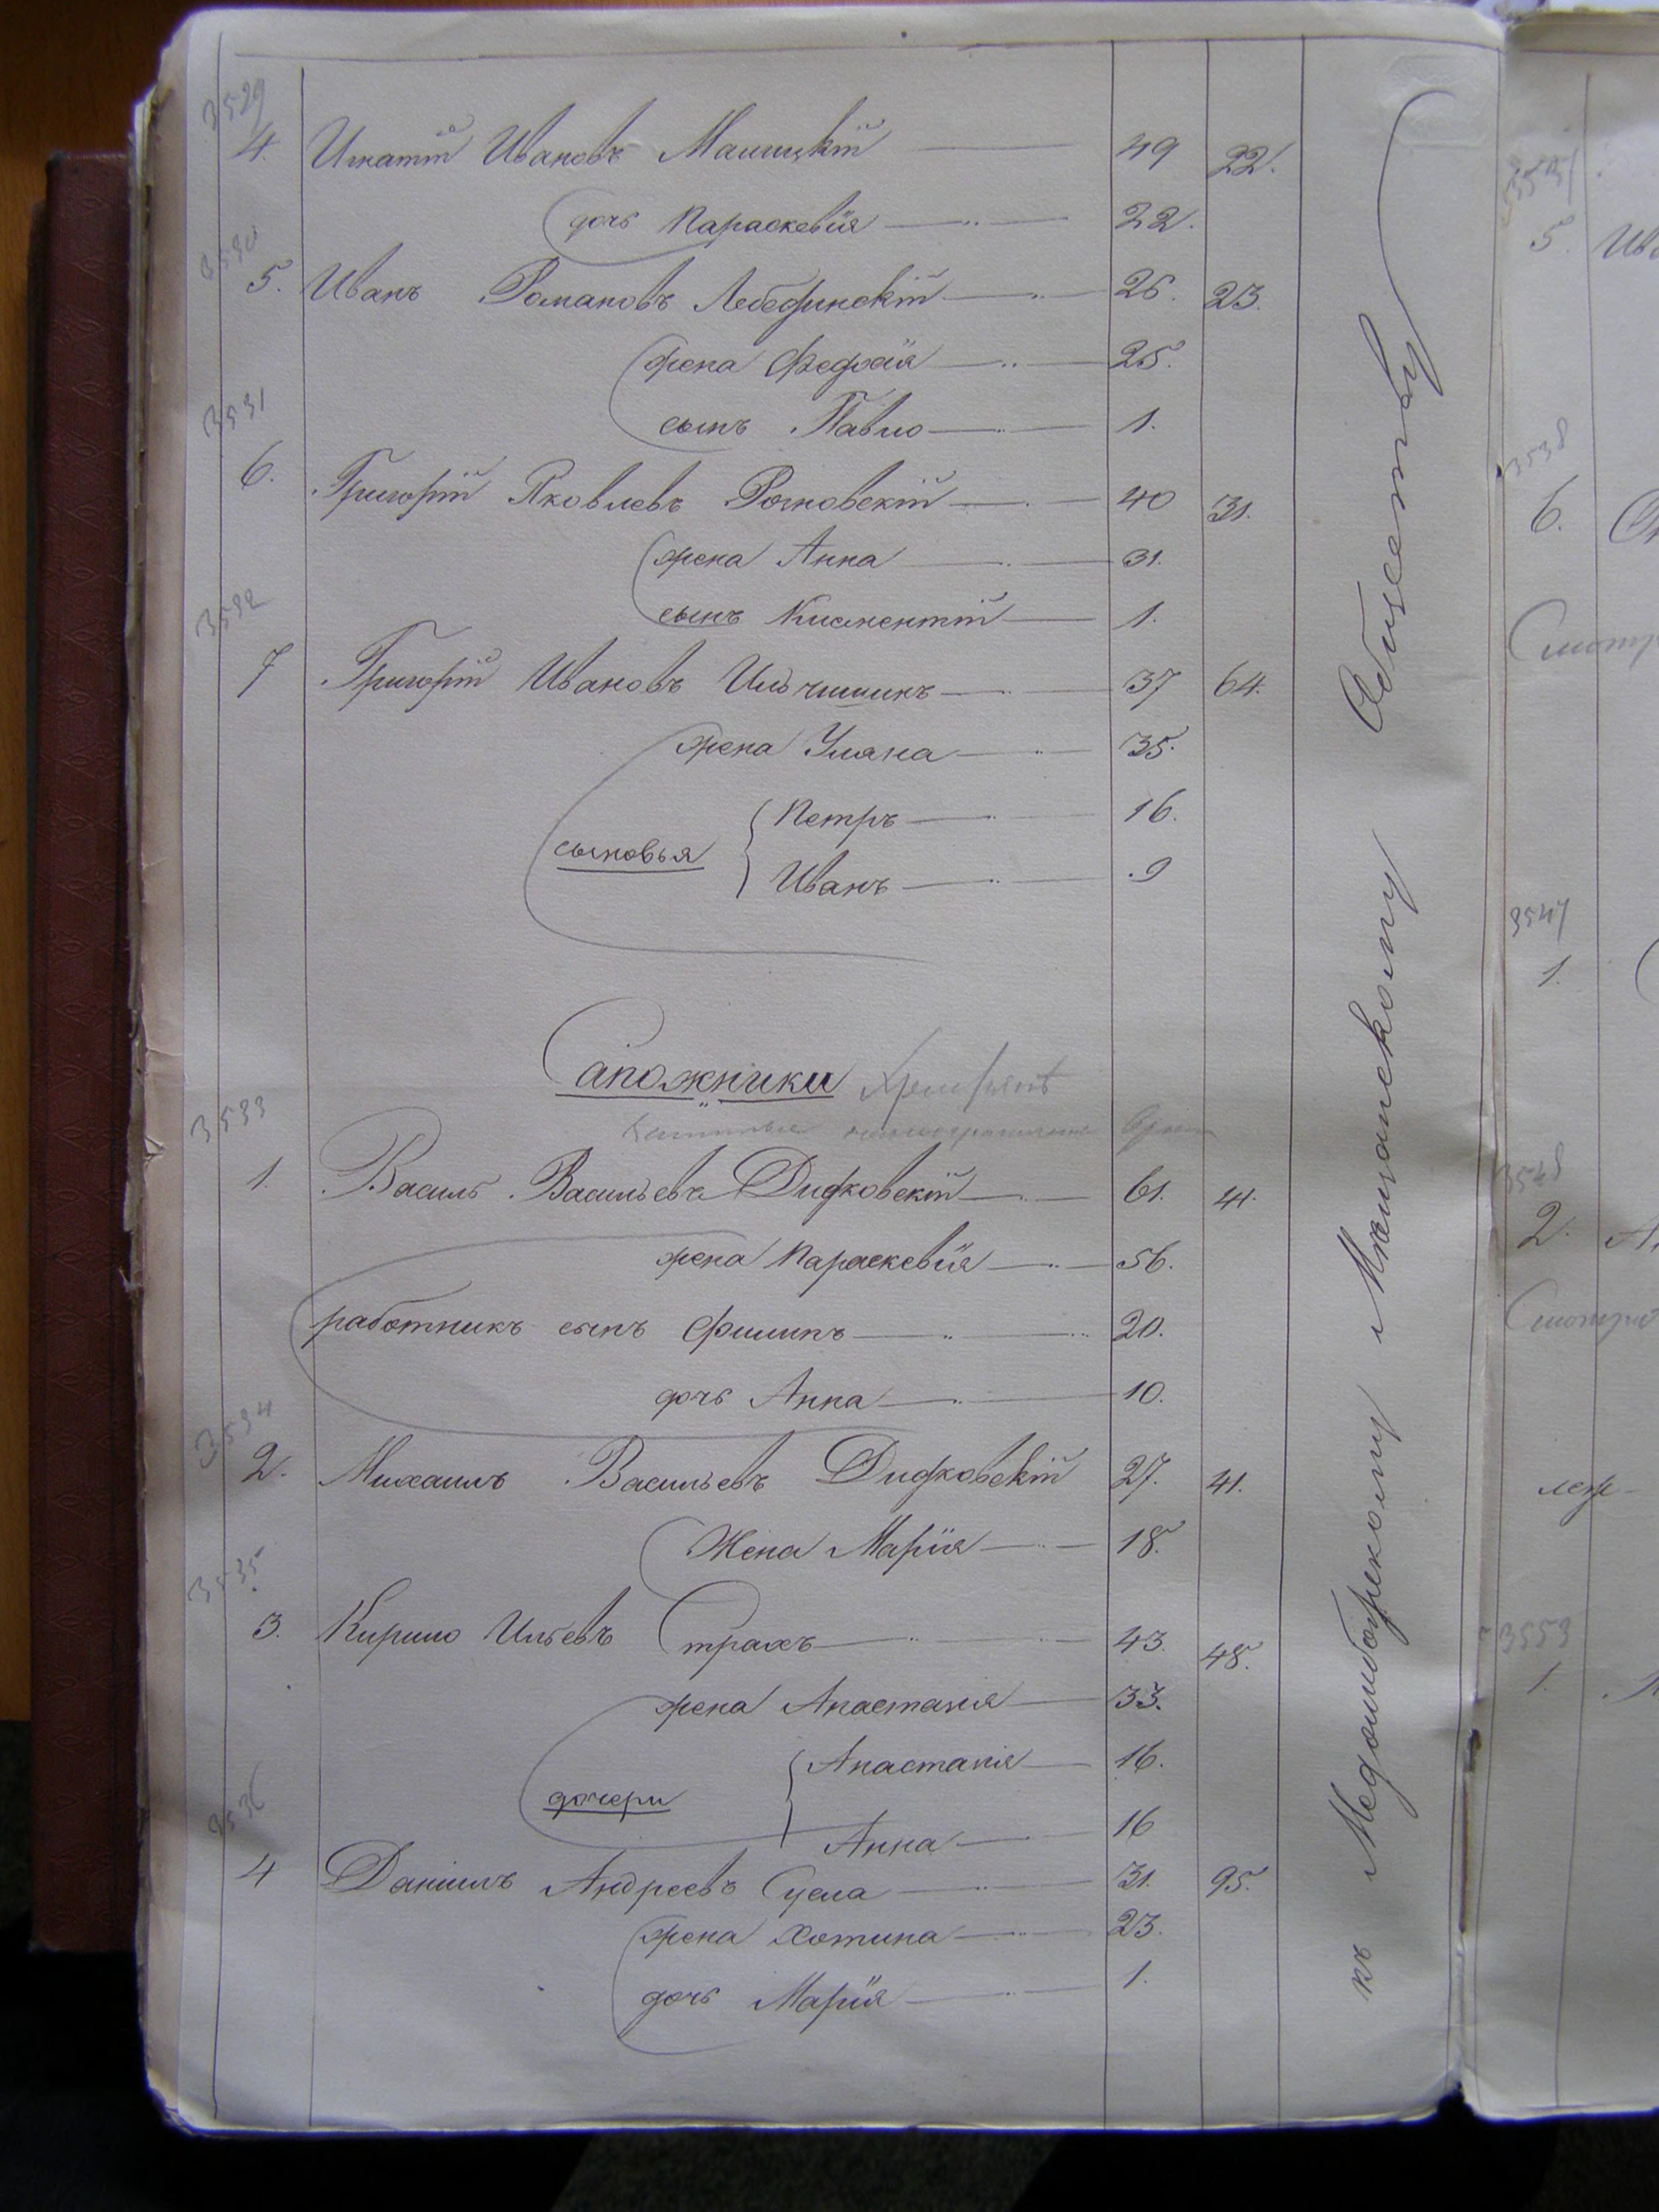 3529
4. Игнатій Ивановъ Машицкій 49 22.
дочь Параскевія 22.
3530
5. Иванъ Романовъ Лебединскій 26. 23.
жена Федосія 25.
сынъ Павло 1.
3531
6. Григорій Яковлевъ Рожновскій 40 31.
жена Анна 31.
сынъ Климентій 1.
3532
7 Григорій Ивановъ Ильчишинъ 37 64.
жена Уляна 35.
сыновья
Петръ 16.
Иванъ 9
Сапожники
3533
1. Василь Васильевъ Дидковскій 61. 41.
жена Параскевія 56.
работникъ сынъ Филипъ 20.
дочь Анна 10.
3534
2. Михаилъ Васильевъ Дидковскій 27. 41.
Жена Марія 18.
3535
3. Кирило Ильевъ Страхъ 43. 48.
жена Анастасія 33.
дочери
Анастасія 16.
Анна 16
3536
4 Даніилъ Андреевъ Сусла 31. 95.
жена Хотина 23.
дочь Марія 1.
къ Медолиборскому Мѣщанскому Обществу
5. Ив
3538
6.
Смотр
3547
1.
3548
2.
3553
1.